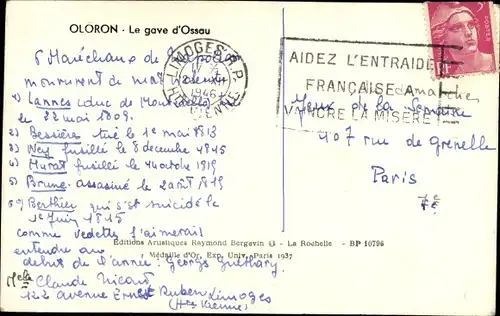 OLORON - Le gave d'Ossau
6 Maréchaux de
monument de
1) Lannes (duc de
le 22 mai 1809.
2) Bessières tué le 1e mai 1813
3) Ney fusillé le 8 decembre 1845
4) Murat fusillé le 14 octobre 1819
5) Brune assasiné le 2 août 1819
6°) Berthier qui s'est suicidé le
1e juin 1815
comme vedettes j'aimerais
entendre au
début de l'année : Georg Guéthary
Claude Nicard
122 avenue Ernest Ruben Limoges
(Hte Vienne)
LIMOGES R.P.
1946
HTE VIENNE
AIDEZ L'ENTRAIDE
FRANÇAISE A
VAINCRE LA MISERE
POSTES
dimanches
Jeux de la Semaine
107 rue de Grenelle
Paris
7e
Éditions Artistiques Raymond Bergevin 43 - La Rochelle - BP 10796
Médaille d'Or, Exp. Univ. Paris 1937